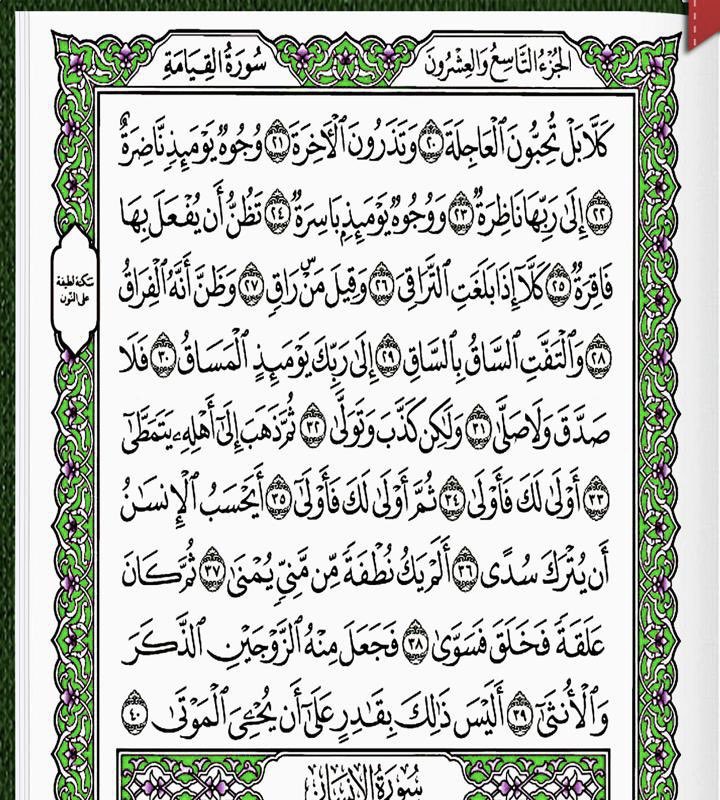 الجُزْءُ التَّاسِعُ وَالْعِشْرُونَ
سُورَةُ القِيَامَةِ
كَلَّا بَلْ تُحِبُّونَ ٱلْعَاجِلَةَ ٢٠ وَتَذَرُونَ ٱلْأٓخِرَةَ ٢١ وُجُوهٌ يَوْمَئِذٍ نَّاضِرَةٌ
٢٢ إِلَىٰ رَبِّهَا نَاظِرَةٌ ٢٣ وَوُجُوهٌ يَوْمَئِذٍۭ بَاسِرَةٌ ٢٤ تَظُنُّ أَن يُفْعَلَ بِهَا
فَاقِرَةٌ ٢٥ كَلَّآ إِذَا بَلَغَتِ ٱلتَّرَاقِىَ ٢٦ وَقِيلَ مَنْۜ رَاقٍ ٢٧ وَظَنَّ أَنَّهُ ٱلْفِرَاقُ
٢٨ وَٱلْتَفَّتِ ٱلسَّاقُ بِٱلسَّاقِ ٢٩ إِلَىٰ رَبِّكَ يَوْمَئِذٍ ٱلْمَسَاقُ ٣٠ فَلَا
صَدَّقَ وَلَا صَلَّىٰ ٣١ وَلَٰكِن كَذَّبَ وَتَوَلَّىٰ ٣٢ ثُمَّ ذَهَبَ إِلَىٰٓ أَهْلِهِۦ يَتَمَطَّىٰٓ
٣٣ أَوْلَىٰ لَكَ فَأَوْلَىٰ ٣٤ ثُمَّ أَوْلَىٰ لَكَ فَأَوْلَىٰٓ ٣٥ أَيَحْسَبُ ٱلْإِنسَٰنُ
أَن يُتْرَكَ سُدًى ٣٦ أَلَمْ يَكُ نُطْفَةً مِّن مَّنِىٍّ يُمْنَىٰ ٣٧ ثُمَّ كَانَ
عَلَقَةً فَخَلَقَ فَسَوَّىٰ ٣٨ فَجَعَلَ مِنْهُ ٱلزَّوْجَيْنِ ٱلذَّكَرَ
وَٱلْأُنثَىٰٓ ٣٩ أَلَيْسَ ذَٰلِكَ بِقَٰدِرٍ عَلَىٰٓ أَن يُحْۦِىَ ٱلْمَوْتَىٰ ٤٠
سكتة لطيفة
على النون
سُورَةُ الإِنسَانِ